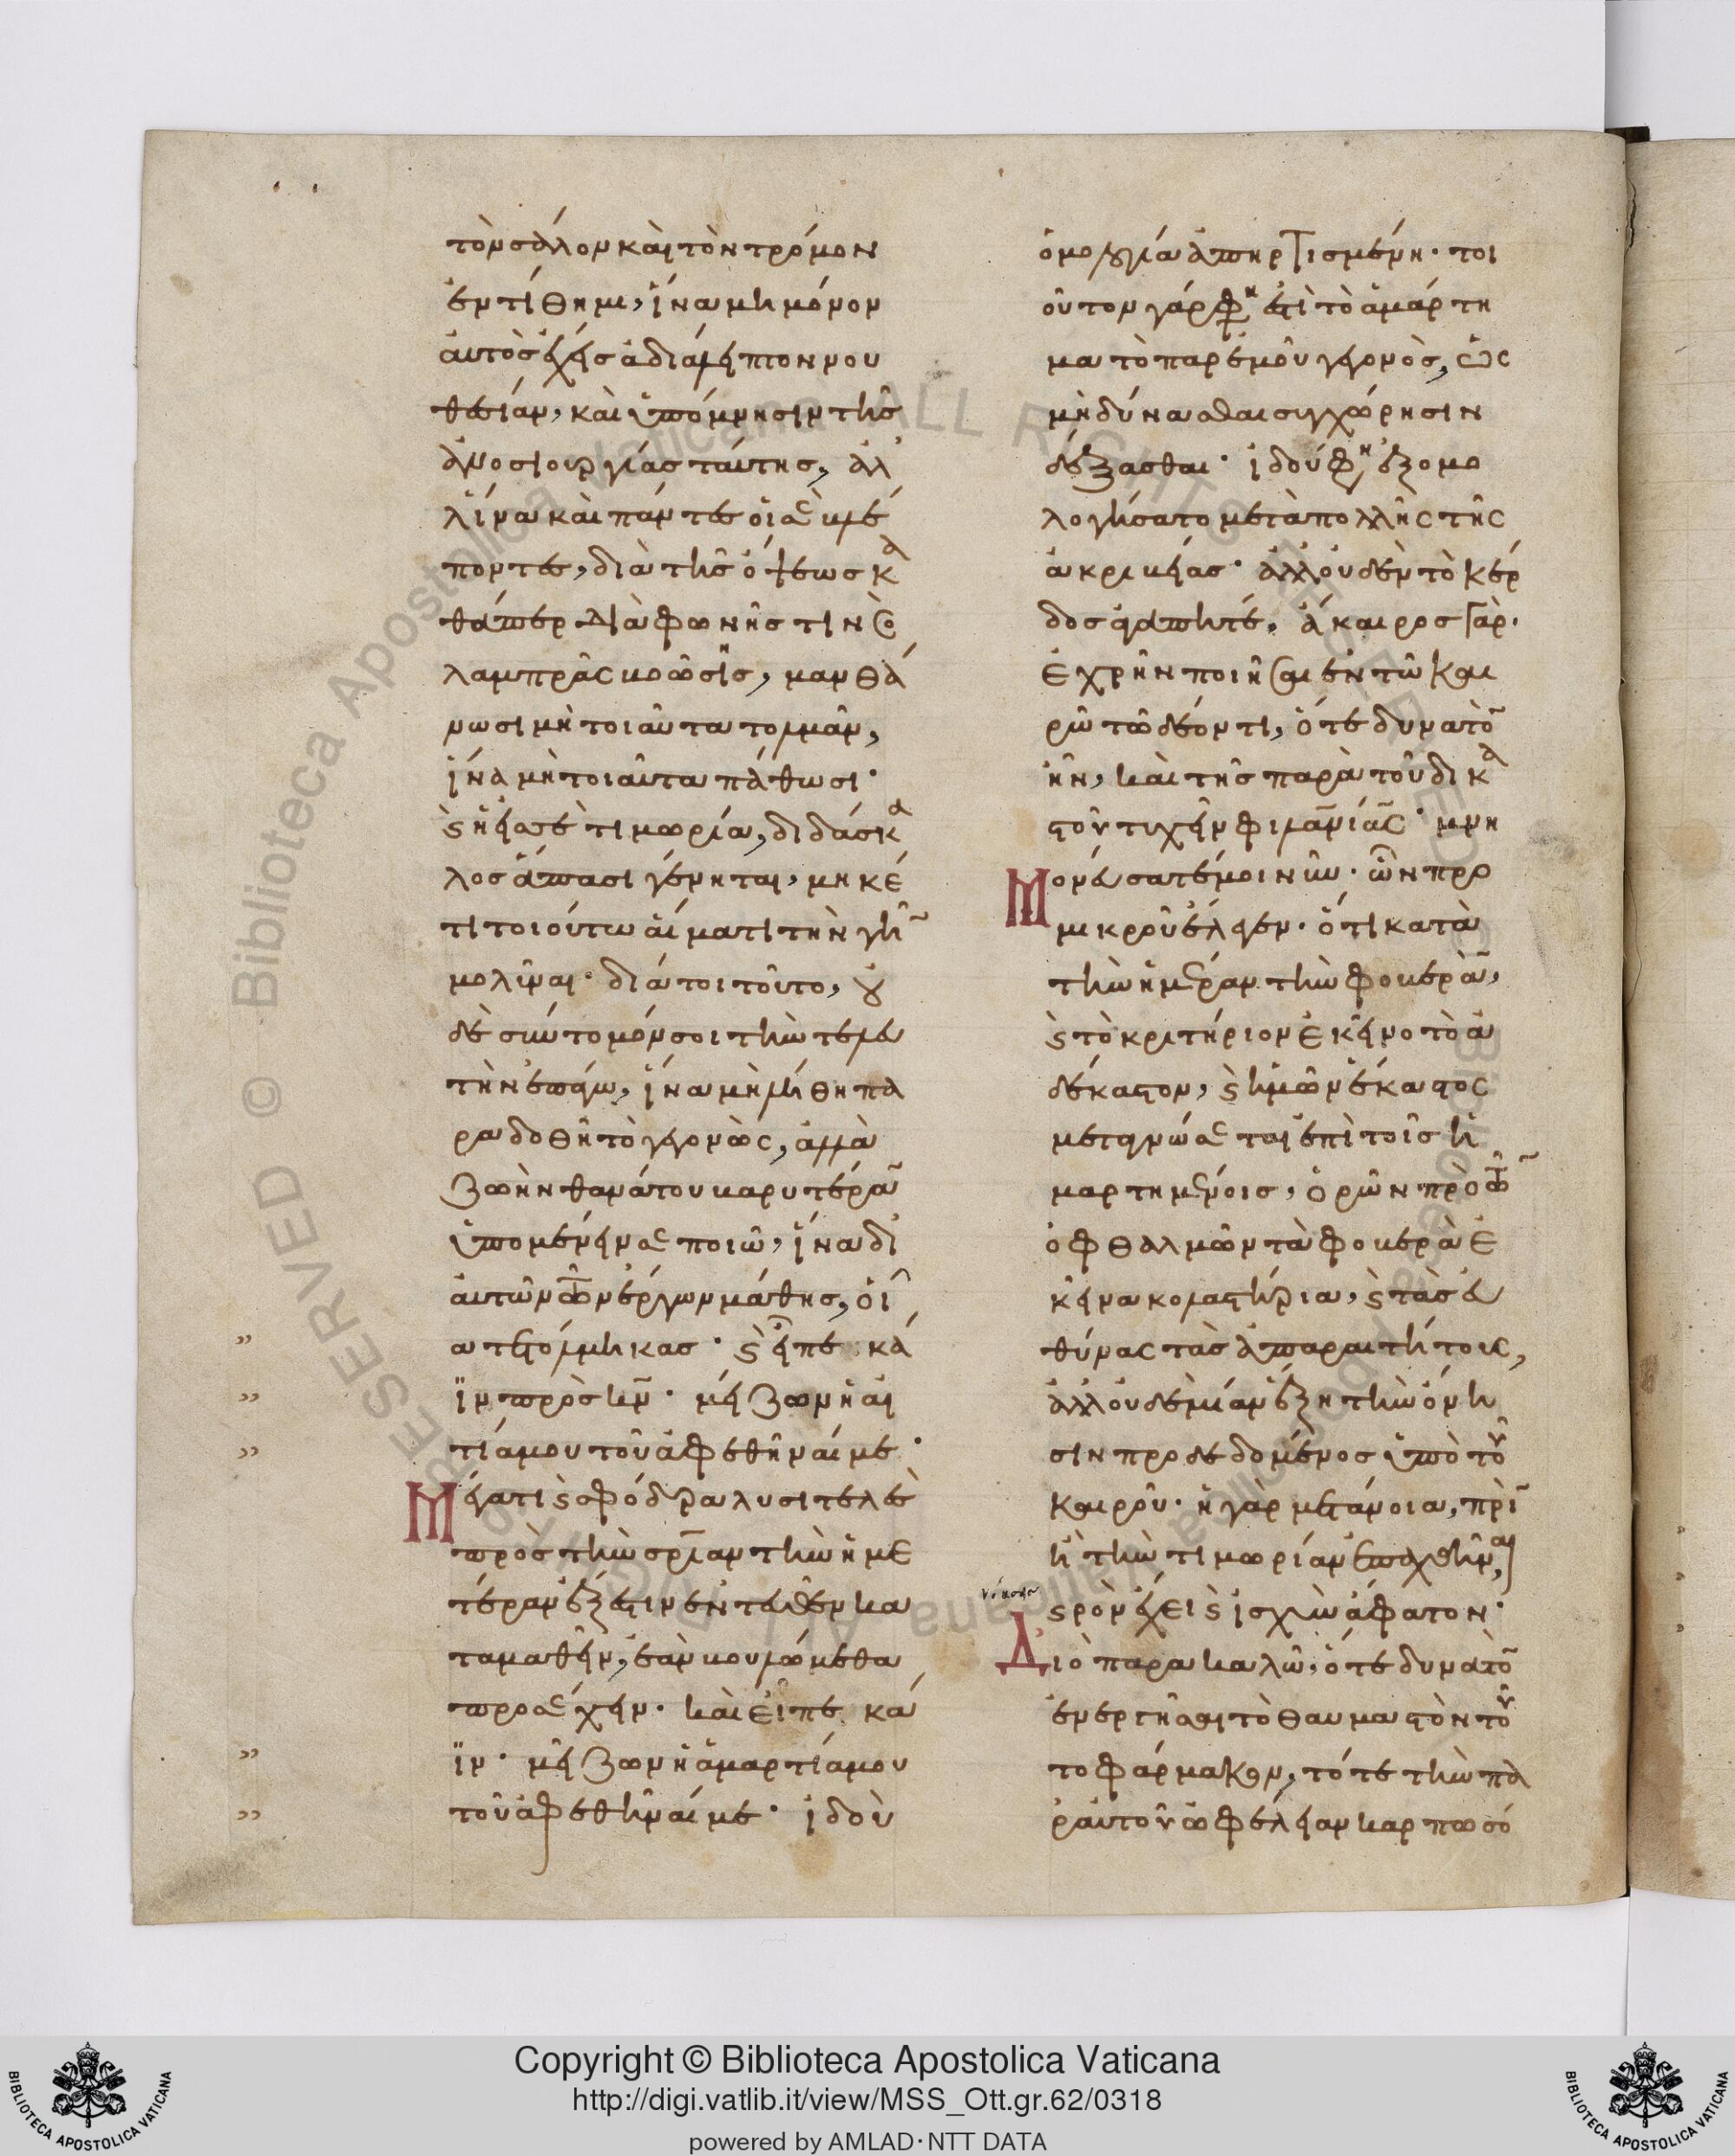 τὸν σάλον καὶ τὸν τρόμον
ἐντίθημι, ἵνα μὴ μόνον
αὐτὸς ἔχης ἀδιάλειπτον νου
θεσίαν, καὶ ὑπόμνησιν τῆς
ἀνοσιουργίας ταύτης, ἀλ
λ' ἵνα καὶ πάντες οἱ σὲ βλέ
ποντες, διὰ τῆς ὄψεως κα
θάπερ διὰ φωνῆς τινὸς
λαμπρᾶς βοώσης, μανθά
νωσι μὴ τοιαῦτα τολμᾶν,
ἵνα μὴ τοιαῦτα πάθωσι.
καὶ ἡ εἰς σὲ τιμωρία, διδάσκα
λος ἅπασι γένηται, μηκέ
τι τοιούτω αἵματι τὴν γῆν
μολῦναι. διάτοι τοῦτο, οὐ
δὲ σύντομόν σοι τὴν τελευ
τὴν ἐπάγω, ἵνα μὴ λήθη πα
ραδοθῆ τὸ γεγονὼς, ἀλλὰ
ζωὴν θανάτου βαρυτέραν
ὑπομένειν σε ποιῶ, ἵνα δι'
αὐτῶν τῶν ἔργων μάθης, οἷ
α τετόλμηκας. καὶ εἶπε κά
ϊν πρὸς κν. μείζων ἡ αἰ
τία μου τοῦ ἀφεθῆναί με.
Μέγα τι καὶ σφόδρα λυσιτελὲς
πρὸς τὴν σρίαν τὴν ἡμε
τέραν ἔξεστιν ἐντεῦθεν κα
ταμαθεῖν, ἐὰν βουλώμεθα
προσέχειν. καὶ εἶπε κά
ϊν. μείζων ἡ ἁμαρτία μου
τοῦ ἀφεθῆναί με. ἰδοὺ
ὁμολογία ἀπηρτισμένη. τοι
οῦτον γάρ φη ἐστὶ τὸ ἁμάρτη
μα τὸ παρ' ἐμοῦ γεγονὸς, ὡς
μὴ δύνασθαι συγχώρησιν
δέξασθαι. ἰδού φη ἐξομο
λογήσατο μετὰ πολλῆς τῆς
ἀκριβείας. ἀλλ' οὐδὲν τὸ κέρ
δος ἀγαπητέ, ἄκαιρος γὰρ.
ἐχρῆν ποιῆσαι ἐν τῶ και
ρῶ τῶ δέοντι, ὅτε δυνατὸν
ἦν, καὶ τῆς παρὰ τοῦ δικα
στοῦ τυχεῖν φιλανίας. μνη
Μονεύσατέ μοι νῦν. ὧν πρὸ
μικροῦ ἔλεγεν. ὅτι κατὰ
τὴν ἡμέραν τὴν φοβερὰν,
καὶ τὸ κριτήριον ἐκεῖνο τὸ ἀ
δέκαστον, καὶ ἡμῶν ἕκαστος
μεταγνώσεται ἐπὶ τοῖς ἡ
μαρτημένοις, ὁρῶν πρὸ τῶν
ὀφθαλμῶν τὰ φοβερὰ ἐ
κεῖνα κολαστήρια, καὶ τὰς εὐ
θύνας τὰς ἀπαραιτήτους,
ἀλλ' οὐδὲ μίαν ἕξη τὴν ὄνη
σιν προδεδομένος ὑπὸ τοῦ
καιροῦ. ἡ γὰρ μετάνοια, πρὶν
ἢ τὴν τιμωρίαν ἐπαχθῆναι
καιρὸν ἔχει καὶ ἰσχὺν ἄφατον.
Διὸ παρακαλῶ, ὅτε δυνατὸν
ἐνεργῆσαι τὸ θαυμαστὸν τοῦ
το φάρμακον, τότε τὴν πα
ρ' αὐτοῦ ὠφέλειαν καρπωσό
Copyright © Biblioteca Apostolica Vaticana
http://digi.vatlib.it/view/MSS_Ott.gr.62/0318
powered by AMLAD·NTT DATA